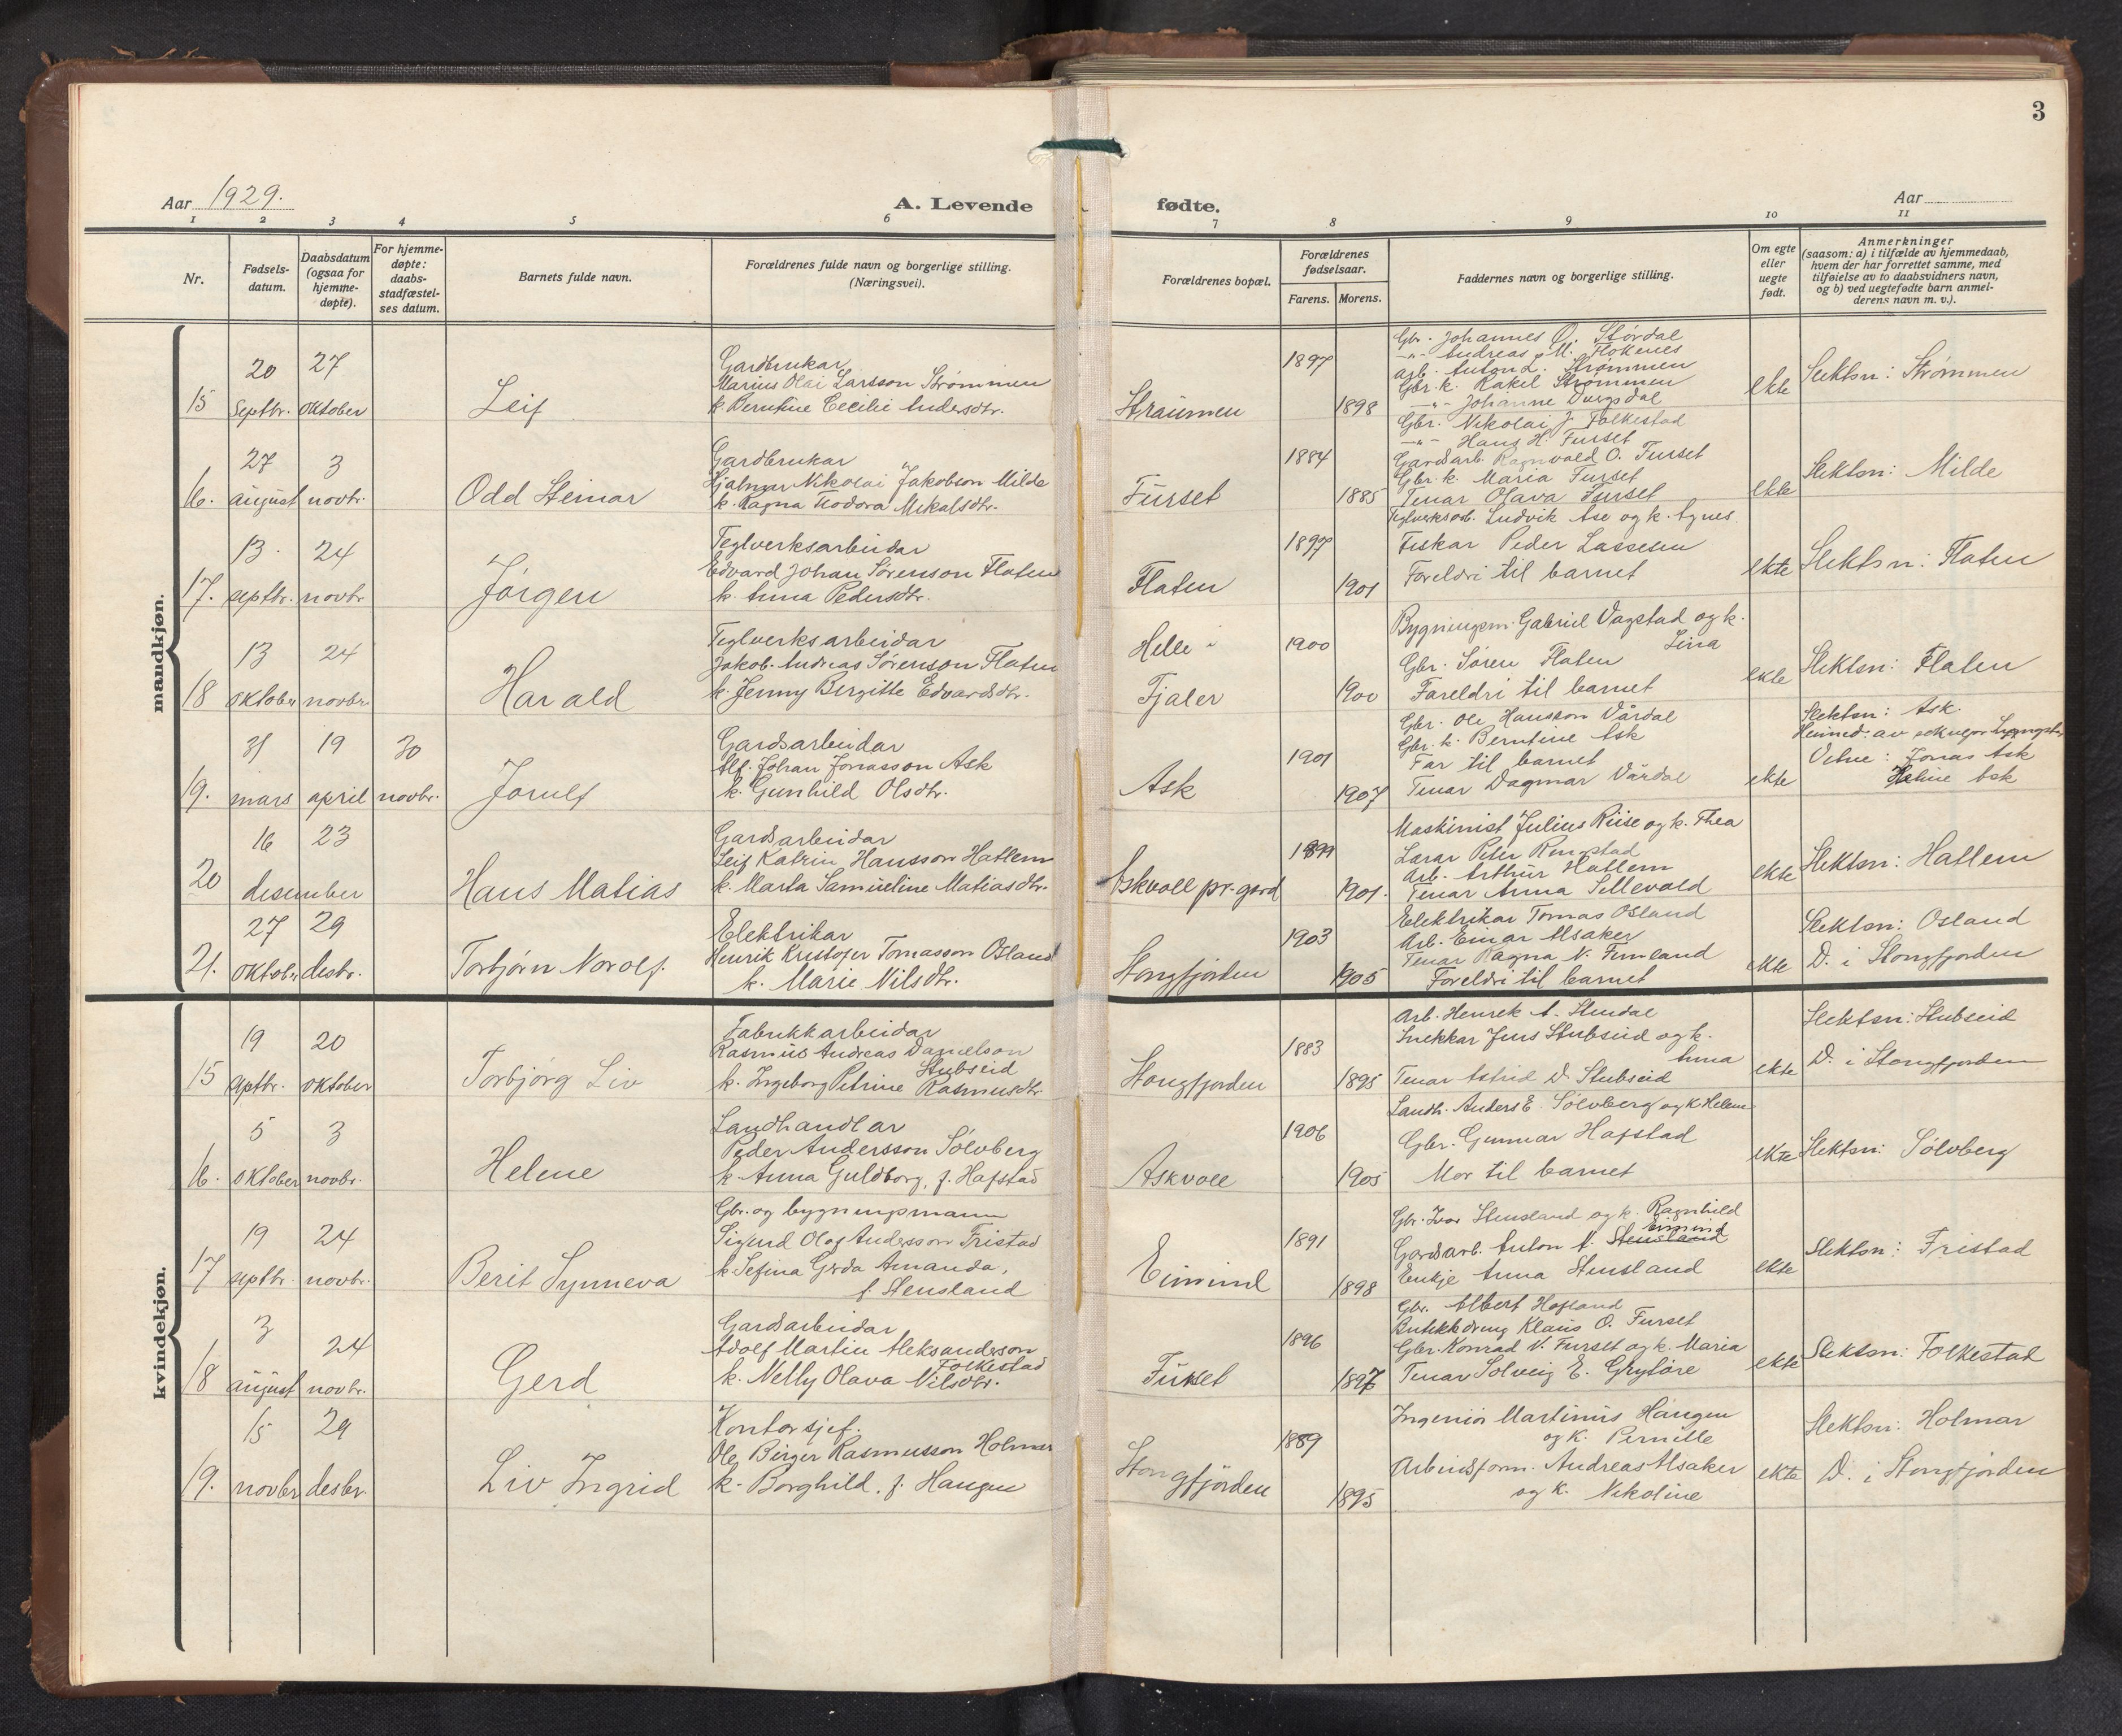 3
Aar 1929.
A. Levende fødte.
Aar
1 2 3 4 5 6 7 8 9 10 11
Nr.
Fødsels-
datum.
Daabsdatum
(ogsaa for
hjemme-
døpte).
For hjemme-
døpte:
daabs-
stadfæstel-
ses datum.
Barnets fulde navn.
Forældrenes fulde navn og borgerlige stilling.
(Næringsvei).
Forældrenes bopæl.
Forældrenes
fødselsaar.
Farens. Morens.
Faddernes navn og borgerlige stilling.
Om egte
eller
uegte
født.
Anmerkninger
(saasom: a) i tilfælde av hjemmedaab,
hvem der har forrettet samme, med
tilføielse av to daabsvidners navn,
og b) ved uegtefødte barn anmel-
derens navn m. v.).
mandkjøn.
15
20
Septbr.
27
oktober
Leif
Gardbrukar
Marius Olai Larsson Strømmen
k. Berntine Cecilie Andersdtr.
Straumen
1897
1898
Gbr. Johannes O. Størdal
-"- Andreas M. Flokenes
Arb. Anton L. Strømmen
Gbr. k. Rakel Strømmen
-"- Johanne Durgsdal
ekte
Slektsn: Strømmen
16.
27
august
3
novbr.
Odd Steinar
Gardbrukar
Hjalmar Nikolai Jakobson Milde
k. Ragna Teodora Mekalsdtr.
Furset
1884
1885
Gbr. Nikolai J. Folkestad
-"- Hans H. Furset
Gardsarb. Ragnvald O. Furset
Gbr. k. Maria Furset
Tenar Olava Furset
ekte
Slektsn: Milde
17.
13.
septbr.
24
novbr.
Jørgen
Teglverksarbeidar
Edvard Johan Sørenson Flaten
k. Anna Pedersdtr.
Flaten
1897
1901
Teglverksarb. Ludvik Ase og k. Agnes.
Fiskar Peder Lassesen
Foreldri til barnet
ekte
Slektsn: Flaten
18
13
oktober
24
novbr.
Harald
Teglverksarbeidar
Jakob Andreas Sørenson Flaten
k. Jenny Bergitte Edvardsdtr.
Helle i
Fjaler
1900
1900
Bygningsm. Gabriel Vagstad og k.
Lina
Gbr. Søren Flaten
Foreldri til barnet
ekte
Slektsn: Flaten
19.
31
mars
19
april
30
novbr.
Jorulf
Gardsarbeidar
Alf Johan Jonasson Ask
k. Gunhild Olsdtr.
Ask
1901
1907
Gbr. Ole Hansson Vårdal
Gbr. k. Berntine Ask
Far til barnet
Tenar Dagmar Vårdal
ekte
Slektsn: Ask
Heimed. av
Vitne: Jonas Ask
Ask
20
16
23
desember
Hans Matias
Gardsarbeidar
Leif Katrin Hansson Hatlem
k. Marta Samueline Matiasdtr.
Askvoll pr.gard
1899
1901.
Maskinist Julius Riise og k. Thea
Lærar Peter Ringstad
Arb. Arthur Hatlem
Tenar Anna Sellevold
ekte
Slektsn: Hatlem
21.
27
oktober
29
desbr.
Torbjørn Norolf.
Elektrikar
Henrik Kristofer Tomasson Osland
k. Marie Nilsdtr.
Stongfjorden
1903
1905
Elektrikar Tomas Osland
Arb. Einar Alsaker
Tenar Ragna N. Femland
Foreldri til barnet
ekte
Slektsn: Osland
D. i Stongfjorden
kvindekjøn.
15
19
septbr.
20
oktober
Torbjørg Liv
Fabrikkarbeidar
Rasmus Andreas Danielson
Stubseid
k. Ingeborg Petrine Rasmusdtr.
Stongfjorden
1883
1895
Arb. Henrik A. Stendal
Snekkar Jens Stubseid og k.
Anna
Tenar Astrid D. Stubseid
ekte
Slektsn: Stubseid
D. i Stongfjorden
16.
5
oktober
3
novbr.
Helene
Landhandlar
Peder Andersson Sølvberg
k. Anna Guldborg, f. Hafstad
Askvoll
1906
1905
Landh. Anders E. Sølvberg og k Helene
Gbr. Gunnar Hafstad
Mor til barnet
ekte
Slektsn: Sølvberg
17
19
septbr.
24
novbr.
Berit Synneva
Gbr. og bygningsmann
Sigurd Olag Andersson Fristad
k. Sefina Gerda Amanda,
f. Stensland
Eimind
1891
1898
Gbr. Ivar Stensland og k. Ragnhild
Eimind
Gardsarb. Anton A. Stensland
Enkje Anna Stensland
ekte
Slektsn: Fristad
18
3
august
24
novbr.
Gerd
Gardsarbeidar
Adolf Martin Aleksanderson
Folkestad
k. Nelly Olava Nilsdtr.
Furset
1896
1897
Gbr. Albert Hofland
Butikkdreng Klaus O. Furset
Gbr. Konrad N. Furset og k. Maria
Tenar Solveig E. Grytøre
ekte
Slektsn: Folkestad
19.
15
novbr
29
desbr.
Liv Ingrid
Kontorsjef.
Ole Birger Rasmusson Holmar
k. Borghild, f. Haugen
Stongfjorden
1889
1895
Ingeniør Martinus Haugen
og k. Pernille
Arbeidsform. Andreas Alsaker
og k. Nikoline
ekte
Slektsn: Holmar
D. i Stongfjorden